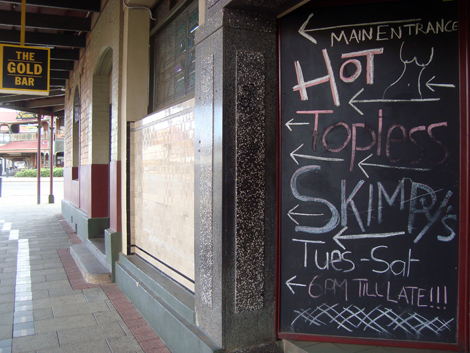 THE
GOLD
BAR
MAIN ENTRANCE
HOT
TOPless
SKIMPY'S
Tues-Sat
6PM TILL LATE!!!